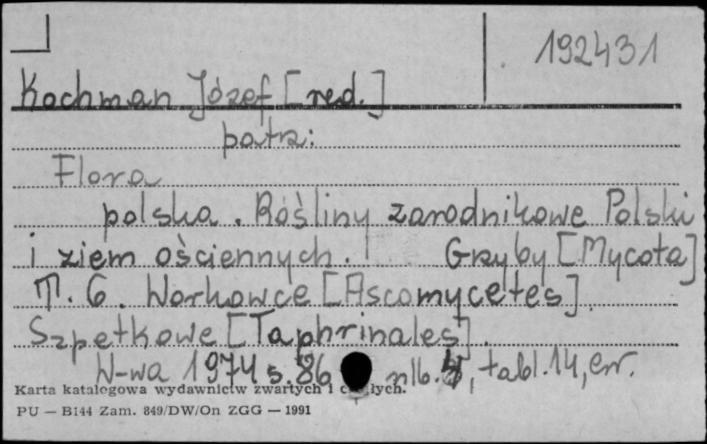 192431
Kochman Józef [red.]
patrz:
Flora
polska. Rośliny zarodnikowe Polski
i ziem ościennych. Grzyby [Mycota]
T. 6. Workowce [Ascomycetes]
Szpetkowe [Taphrinales].
W-wa 1974 s. 86 nlb. , tabl. 14, err.
Karta katalogowa wydawnictw zwartych i ciągłych.
PU — Bi44 Zam. 849/DW/On ZGG — 1991